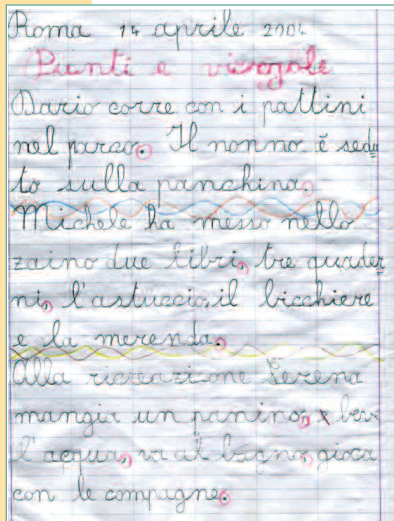 Roma 14 aprile 2004
Punti e virgole
Dario corre con i pattini
nel parco. Il nonno è sedu
to sulla panchina.
Michele ha messo nello
zaino due libri, tre quader
ni, l'astuccio, il bicchiere
e la merenda.
Alla ricreazione Serena
mangia un panino, beve
l'acqua, va al bagno, gioca
con le compagne.